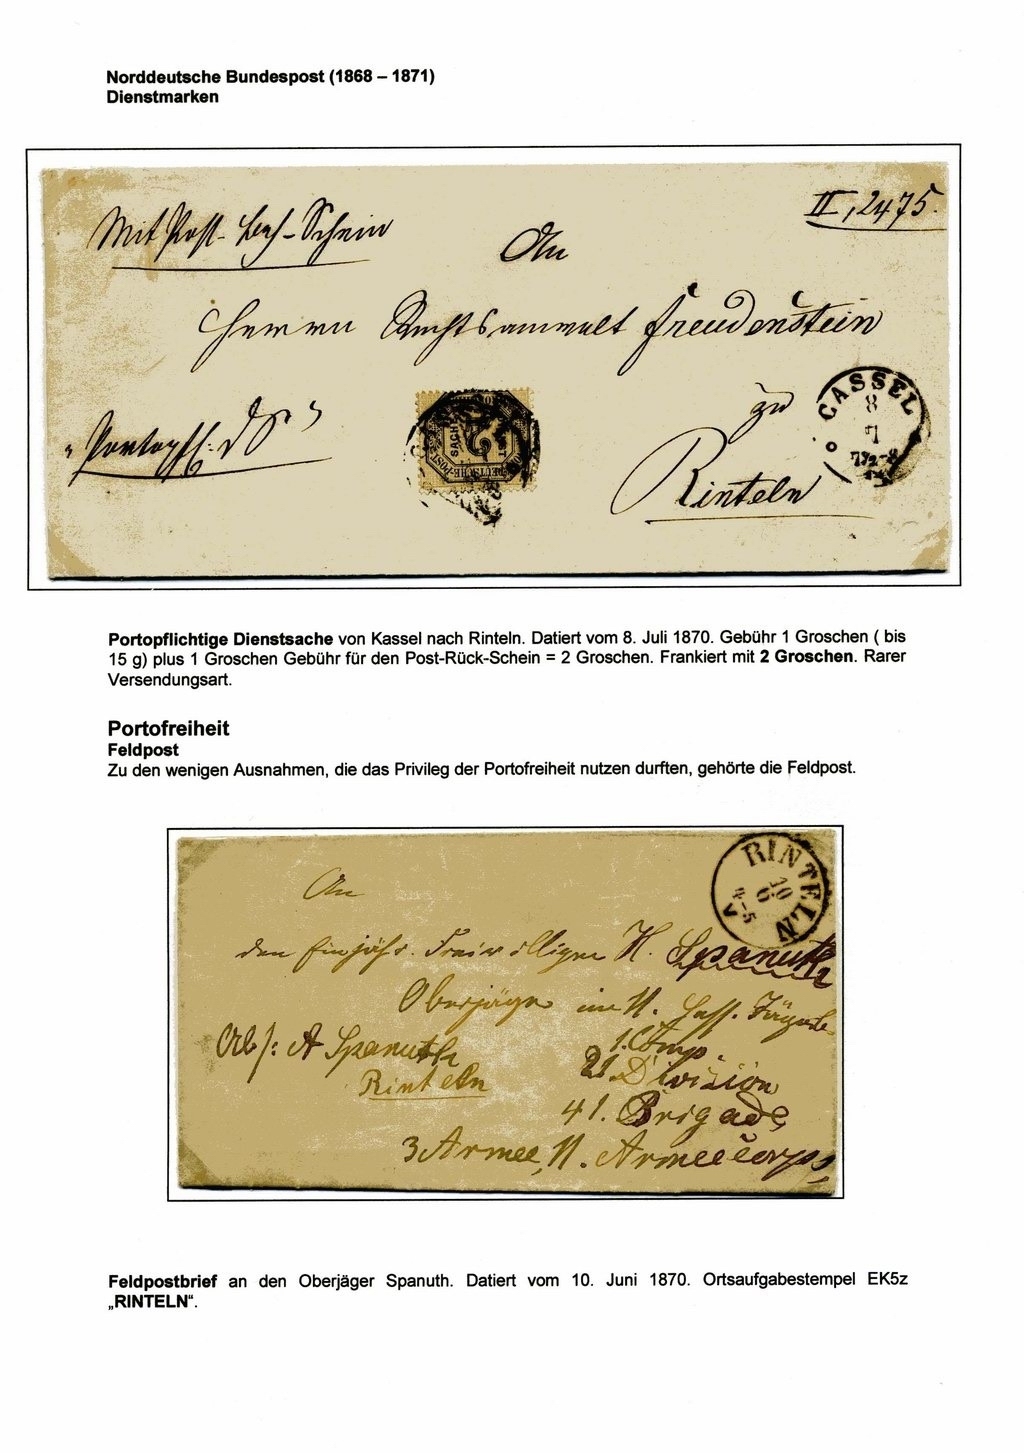 Norddeutsche Bundespost (1868 – 1871)
Dienstmarken
Mit Post- Beh-Schein
II, 2475.
An
Herrn Rechtsanwalt Freudenstein
„Portopfl: DS“
zu
Rinteln
CASSEL
8
7
7½-8
SACHE
2
DEUTSCHE-POST
Portopflichtige Dienstsache von Kassel nach Rinteln. Datiert vom 8. Juli 1870. Gebühr 1 Groschen ( bis
15 g) plus 1 Groschen Gebühr für den Post-Rück-Schein = 2 Groschen. Frankiert mit 2 Groschen. Rarer
Versendungsart.
Portofreiheit
Feldpost
Zu den wenigen Ausnahmen, die das Privileg der Portofreiheit nutzen durften, gehörte die Feldpost.
RINTELN
10
6
4-5
An
den Einjähr. Freiwilligen H. Spanuth
Oberjäger im 11. Hess. Jäger
1. Comp.
Abs: A Spanuth
Rinteln
21 Division
41. Brigade
3 Armee, 11. Armeecorps
Feldpostbrief an den Oberjäger Spanuth. Datiert vom 10. Juni 1870. Ortsaufgabestempel EK5z
„RINTELN“.